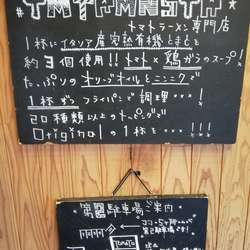 トマトラーメン専門店
1杯にイタリア産完熟有機トマトを
約3個使用!! トマト×鶏ガラのスープ!
たっぷりのオリーブオイルとニンニクで
1杯ずつフライパンで調理・・・!
20種類以上のトッピングで
Originalの1杯を・・・!!
第2駐車場ご案内